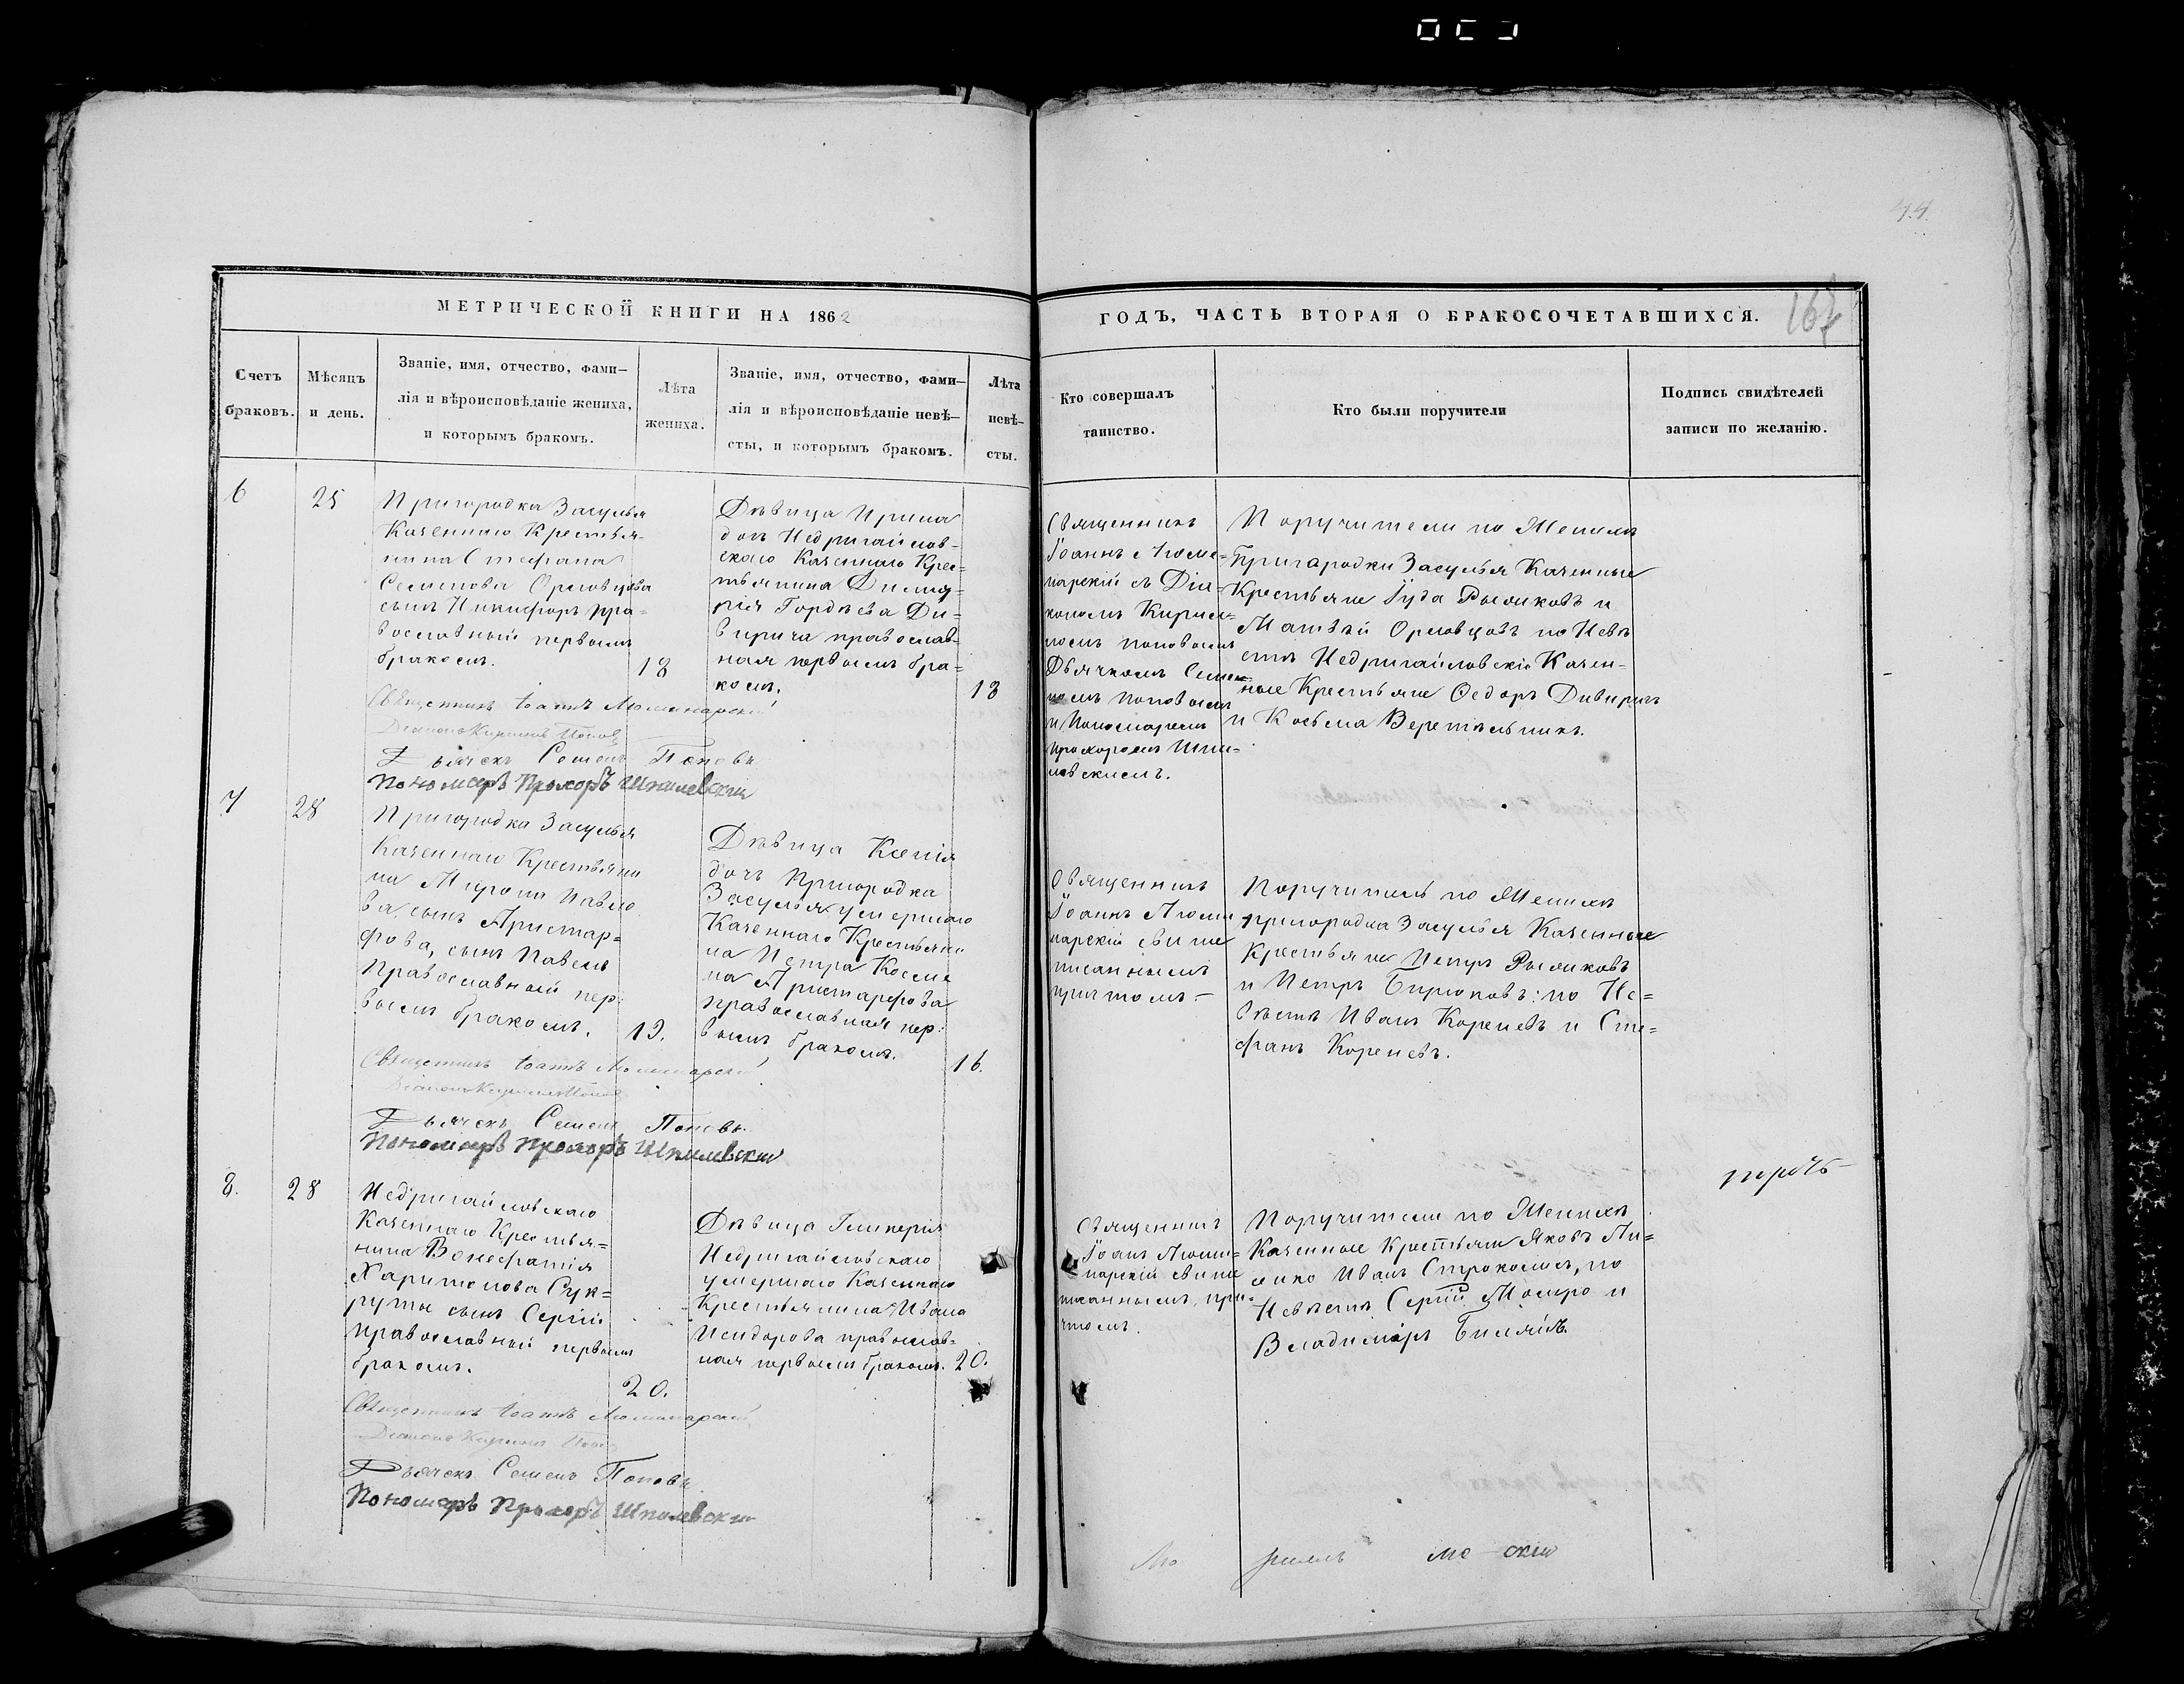 44
167
МЕТРИЧЕСКОЙ КНИГИ НА 1862
ГОДЪ, ЧАСТЬ ВТОРАЯ О БРАКОСОЧЕТАВШИХСЯ.
Счетъ
браковъ.
Мѣсяцъ
и день.
Званіе, имя, отчество, фами—
лія и вѣроисповѣданіе жениха,
и которымъ бракомъ.
Лѣта
жениха.
Званіе, имя, отчество, фами—
лія и вѣроисповѣданіе невѣ—
сты, и которымъ бракомъ.
Лѣта
невѣ—
сты.
Кто совершалъ
таинство.
Кто были поручители
Подпись свидѣтелей
записи по желанію.
6
25
Пригородка Засулья
Казеннаго Крестья-
нина Стефана
Семенова Орловцова
сынъ Никифоръ пра-
вославный первымъ
бракомъ.
18
Дѣвица Ирина
дочь Недригайлов-
скаго Казеннаго Крес-
тьянина Димит-
рія Гордѣева Ди-
вирича православ-
ная первымъ бра-
комъ.
18
Священникъ
Іоаннъ Люми-
нарскій съ Діа-
кономъ Кирил-
ломъ Поповымъ
Дьячкомъ Семе-
номъ Поповымъ
и Пономаремъ
Прохоромъ Шпи-
левскимъ.
Поручители по Женихѣ
Пригародки Засулья Казенные
Крестьяне Іуда Рыжиковъ и
Матвѣй Орловцовъ по Невѣ
стѣ Недригайловскіе Казен-
ные Крестьяне Федоръ Дивиричъ
и Косьма Веретѣльникъ.
Священникъ Іоаннъ Люминарскій
Діаконъ Кириллъ Поповъ
Дьячекъ Семенъ Поповъ
Пономарь Прохоръ Шпилевскій
7
28
Пригородка Засулья
Казеннаго Крестьяни
на Мирона Павло
ва, сынъ Аристар-
фова, сынъ Павелъ
Православный пер-
вымъ бракомъ.
19.
Дѣвица Ксенія
дочь Пригородка
Засулья умершаго
Казеннаго Крестьяни
на Петра Косми
на Аристарфова
православная пер-
вымъ бракомъ.
16.
Священникъ
Іоаннъ Люми
нарскій свыше
писаннымъ
причтомъ.—
Поручители по Женихѣ
пригородка Засулья Казенные
Крестьяне Петръ Рыжиковъ
и Петръ Бирюковъ: по Не-
вѣстѣ Иванъ Кореневъ и Сте-
фанъ Кореневъ.
Священникъ Іоаннъ Люминарскій
Діаконъ Кириллъ Поповъ
Дьячекъ Семенъ Поповъ.
Пономарь Прохоръ Шпилевскій
8.
28
Недригайловскаго
Казеннаго Крестья-
нина Вонефатія
Харитонова Сук-
руты сынъ Сергій
православный первымъ
бракомъ.
20.
Дѣвица Гликерія
Недригайловскаго
умершаго Казеннаго
Крестьянина Ивана
Исидорова православ-
ная первымъ бракомъ.
20.
Священникъ
Іоанъ Люми-
нарскій свыше
писаннымъ при-
чтомъ.
Поручители по Женихѣ
Казенные Крестьяне Яковъ
Иванъ по
Невѣстѣ Сергій и
Владиміръ
Священникъ Іоаннъ Люминарскій
Діаконъ Кириллъ Поповъ
Дьячекъ Семенъ Поповъ.
Пономарь Прохоръ Шпилевскій